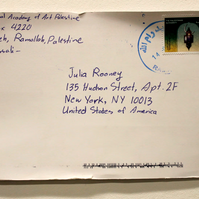 Academy of Art Palestine
x 4220
eh, Ramallah, Palestine
Jula Rooney
135 Hudson Street, Apt. 2F
New York, NY 10013
United States of America